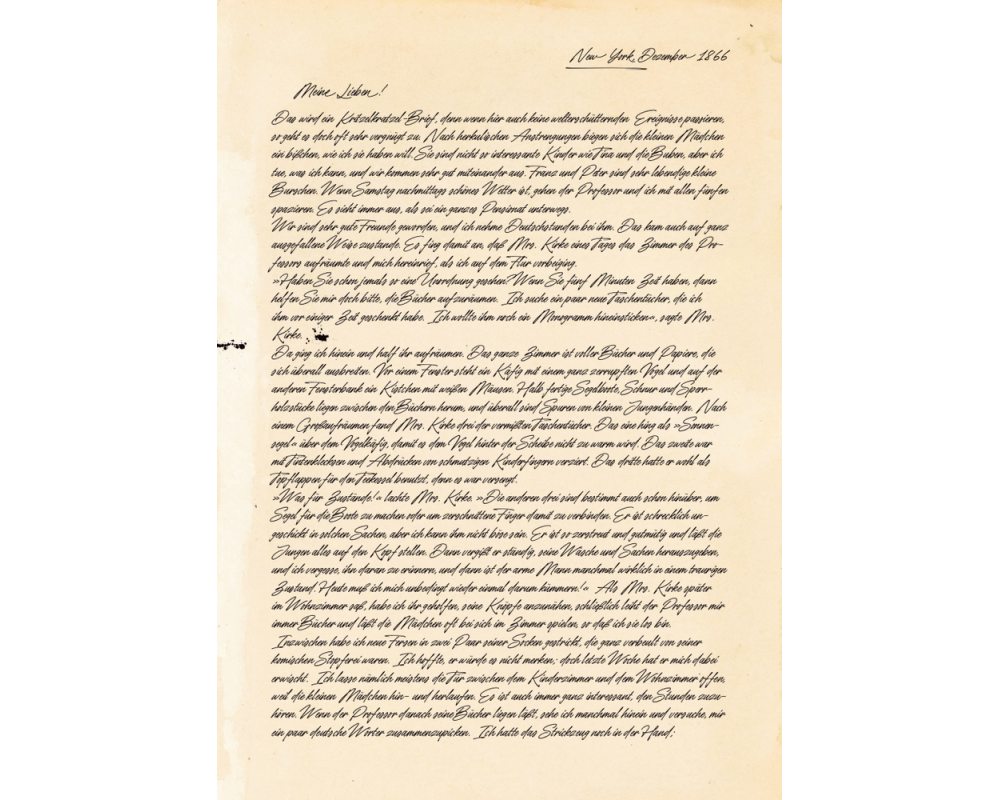 New York, Dezember 1866
Meine Lieben!
Das wird ein Kritzelkratzel-Brief, denn wenn hier auch keine welterschütternden Ereignisse passieren,
so geht es doch oft sehr vergnügt zu. Nach herkulischen Anstrengungen biegen sich die kleinen Mädchen
ein bißchen, wie ich sie haben will. Sie sind nicht so interessante Kinder wie Tina und die Buben, aber ich
tue, was ich kann, und wir kommen sehr gut miteinander aus. Franz und Peter sind sehr lebendige kleine
Burschen. Wenn Samstag nachmittags schönes Wetter ist, gehen der Professor und ich mit allen fünfen
spazieren. Es sieht immer aus, als sei ein ganzes Pensionat unterwegs.
Wir sind sehr gute Freunde geworden, und ich nehme Deutschstunden bei ihm. Das kam auch auf ganz
ausgefallene Weise zustande. Es fing damit an, daß Mrs. Kirke eines Tages das Zimmer des Pro-
fessors aufräumte und mich hereinrief, als ich auf dem Flur vorbeiging.
»Haben Sie schon jemals so eine Unordnung gesehen? Wenn Sie fünf Minuten Zeit haben, dann
helfen Sie mir doch bitte, die Bücher aufzuräumen. Ich suche ein paar neue Taschentücher, die ich
ihm vor einiger Zeit geschenkt habe. Ich wollte ihm noch ein Monogramm hineinsticken«, sagte Mrs.
Kirke.
Da ging ich hinein und half ihr aufräumen. Das ganze Zimmer ist voller Bücher und Papiere, die
sich überall ausbreiten. Vor einem Fenster steht ein Käfig mit einem ganz zerrupften Vogel und auf der
anderen Fensterbank ein Kästchen mit weißen Mäusen. Halb fertige Segelboote, Schnur und Sperr-
holzstücke liegen zwischen den Büchern herum, und überall sind Spuren von kleinen Jungenhänden. Nach
einem Großaufräumen fand Mrs. Kirke drei der vermißten Taschentücher. Das eine hing als »Sonnen-
segel« über dem Vogelkäfig, damit es dem Vogel hinter der Scheibe nicht zu warm wird. Das zweite war
mit Tintenklecksen und Abdrücken von schmutzigen Kinderfingern verziert. Das dritte hatte er wohl als
Topflappen für den Teekessel benutzt, denn es war versengt.
»Was für Zustände!« lachte Mrs. Kirke. »Die anderen drei sind bestimmt auch schon hinüber, um
Segel für die Boote zu machen oder um zerschnittene Finger damit zu verbinden. Er ist schrecklich un-
geschickt in solchen Sachen, aber ich kann ihm nicht böse sein. Er ist so zerstreut und gutmütig und läßt die
Jungen alles auf den Kopf stellen. Dann vergißt er ständig, seine Wäsche und Sachen herauszugeben,
und ich vergesse, ihn daran zu erinnern, und dann ist der arme Mann manchmal wirklich in einem traurigen
Zustand. Heute muß ich mich unbedingt wieder einmal darum kümmern!« Als Mrs. Kirke später
im Wohnzimmer saß, habe ich ihr geholfen, seine Knöpfe anzunähen, schließlich leiht der Professor mir
immer Bücher und läßt die Mädchen oft bei sich im Zimmer spielen, so daß ich sie los bin.
Inzwischen habe ich neue Fersen in zwei Paar seiner Socken gestrickt, die ganz verbeult von seiner
komischen Stopferei waren. Ich hoffte, er würde es nicht merken; doch letzte Woche hat er mich dabei
erwischt. Ich lasse nämlich meistens die Tür zwischen dem Kinderzimmer und dem Wohnzimmer offen,
weil die kleinen Mädchen hin- und herlaufen. Es ist auch immer ganz interessant, den Stunden zuzu-
hören. Wenn der Professor danach seine Bücher liegen läßt, sehe ich manchmal hinein und versuche, mir
ein paar deutsche Wörter zusammenzupicken. Ich hatte das Strickzeug noch in der Hand;